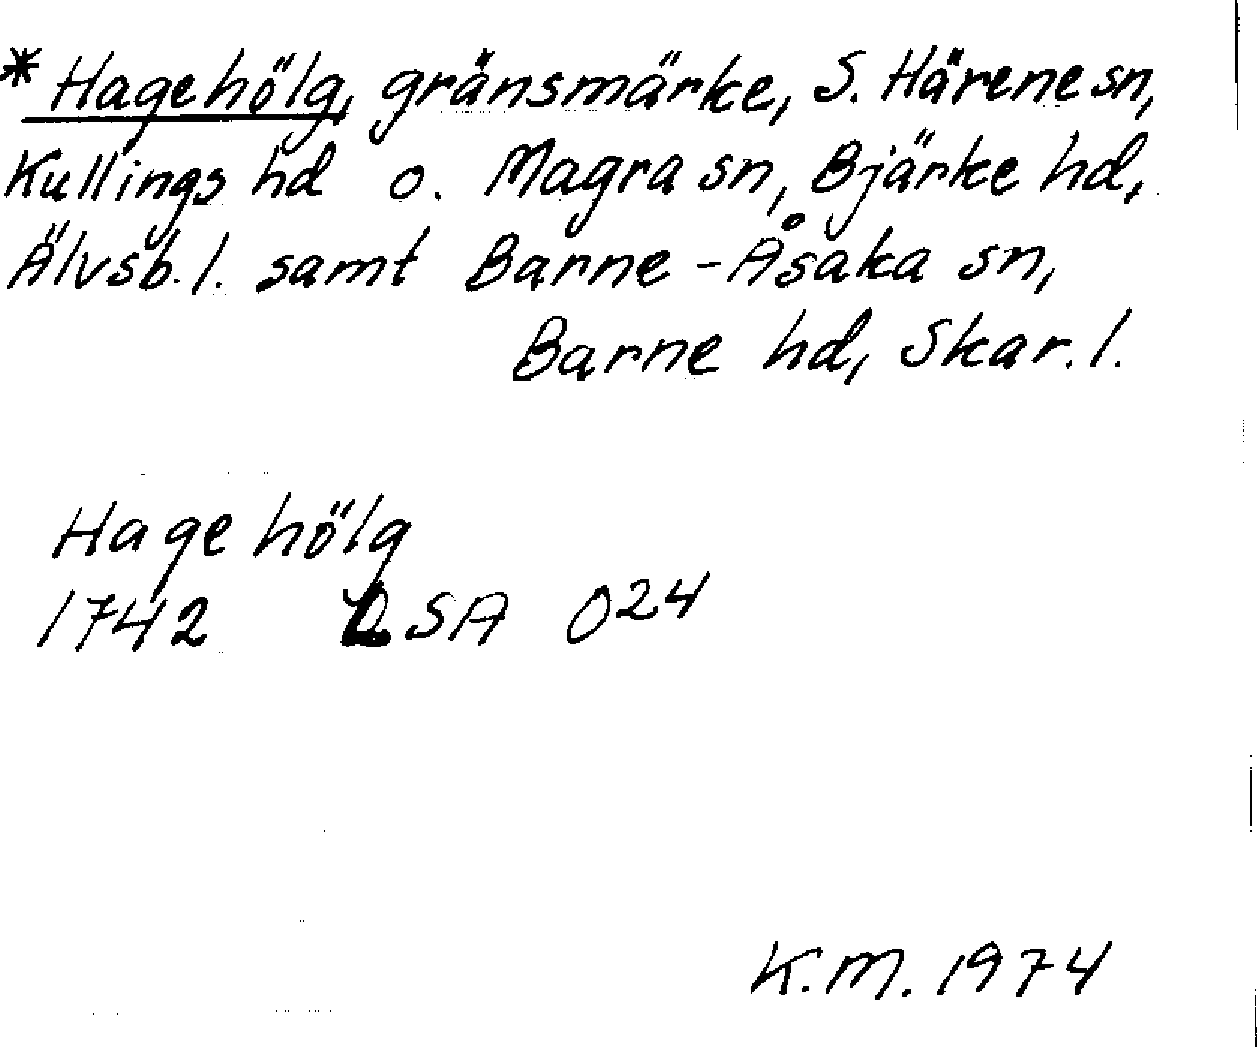 * Hagehölg, gränsmärke, S. Härene sn,
Kullings hd o. Magra sn, Bjärke hd,
Älvsb. l. samt Barne-Åsaka sn,
Barne hd, Skar. l.
Hage hölg
1742 LSA O24
K.M. 1974